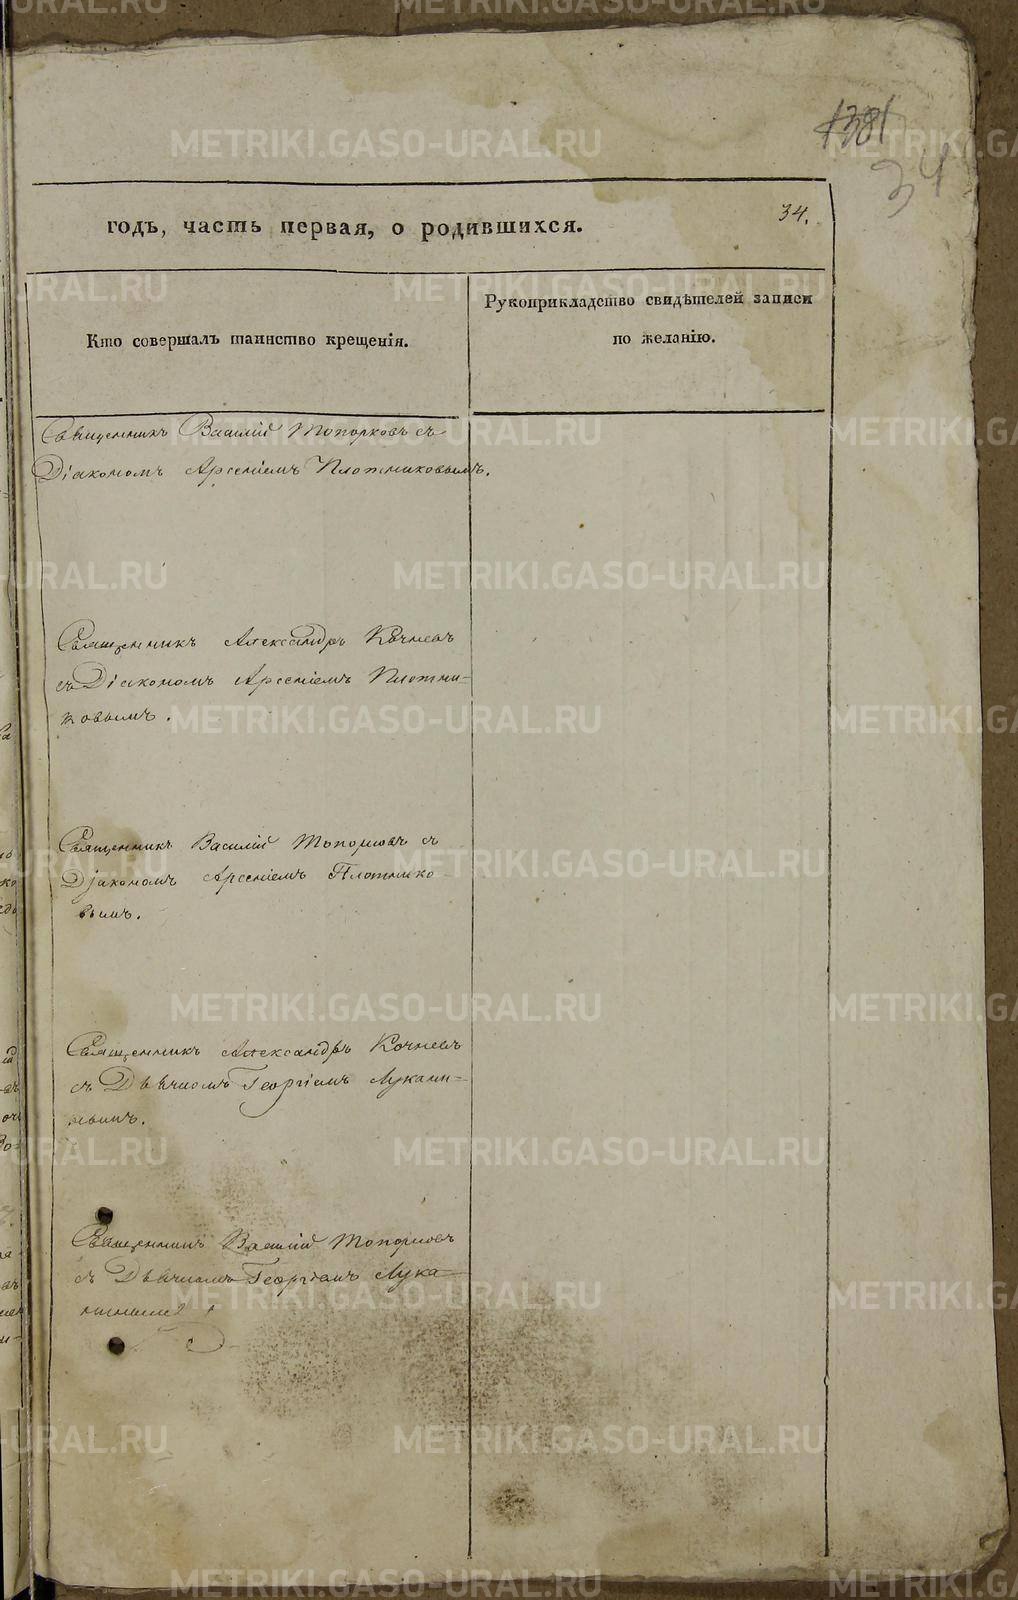 1381
34
годъ, часть первая, о родившихся.
34.
Кто совершалъ таинство крещенія.
Рукоприкладство свидѣтелей записи
по желанію.
Священникъ Василій Топорковъ съ
Діакономъ Арсеніемъ Плотниковымъ.
Священникъ Александръ Кочневъ
съ Діакономъ Арсеніемъ Плотни-
ковымъ.
Священникъ Василій Топорковъ съ
Діакономъ Арсеніемъ Плотнико-
вымъ.
Священникъ Александръ Кочневъ
съ Дьячкомъ Георгіемъ Лукани-
нымъ.
Священникъ Василій Топорковъ
съ Дьячкомъ Георгіемъ Лука-
METRIKI.GASO-URAL.RU